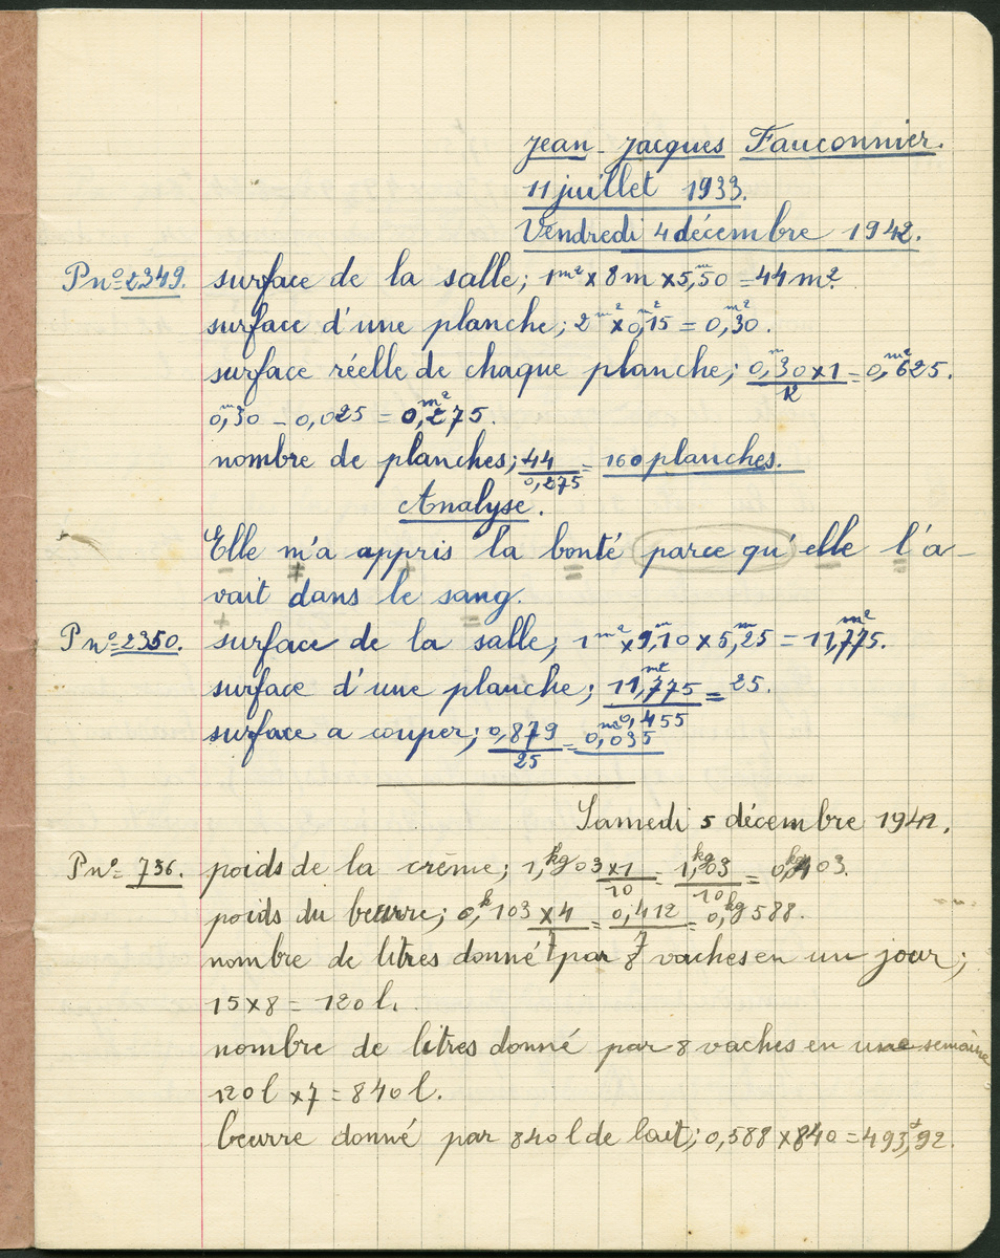 Jean-Jacques Fauconnier.
11 juillet 1933.
Vendredi 4 décembre 1942.
P nº 2349. surface de la salle; 1m² x 8m x 5,m50 = 44 m².
surface d'une planche; 2m² x 0,m15 = 0,m²30.
surface réelle de chaque planche; 0,m30 x 1 / 12 = 0,m²625.
0,m30 - 0,025 = 0,m²275.
nombre de planches; 44 / 0,275 = 160 planches.
Analyse.
Elle m'a appris la bonté parce qu'elle l'a-
vait dans le sang.
P nº 2350. surface de la salle; 1m² x 9,m10 x 5,m25 = 11,m²775.
surface d'une planche; 11,m²775 / 0,455 = 25.
surface a couper; 0,879 / 25 = 0,m²035
Samedi 5 décembre 1942.
P nº 736. poids de la crème; 1,kg03 x 1 / 10 = 1,kg03 / 10 = 0,kg103.
poids du beurre; 0,k103 x 4 / 7 = 0,412 / 7 = 0,kg588.
nombre de litres donné par 8 vaches en un jour;
15 x 8 = 120 l.
nombre de litres donné par 8 vaches en une semaine
120 l x 7 = 840 l.
beurre donné par 840 l de lait; 0,588 x 840 = 493,92.